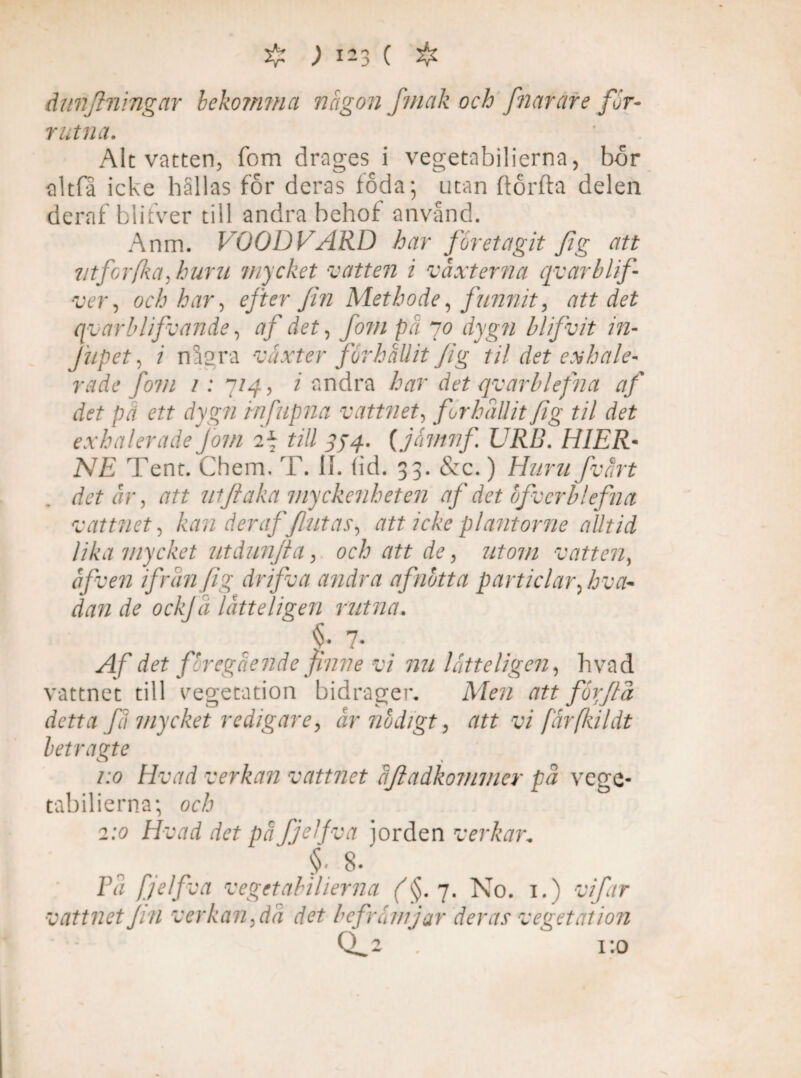 ☼ ) 123 ( ☼
dunſtningar bekomma någon ſmak och ſnarare för-
rutna.
Alt vatten, ſom drages i vegetabilierna, bör
altſå icke hållas för deras föda; utan ſtörſta delen
deraf blifver till andra behof använd.
Anm. VOODVARD har företagit ſig att
utforſka, huru mycket vatten i växterna qvarblif-
ver, och har, efter ſin Methode, funnit, att det
qvarblifvande, af det, ſom på 70 dygn blifvit in-
ſupet, i några växter förhållit ſig til det exhale-
rade ſom 1: 714, i andra har det qvarblefna af
det på ett dygn inſupna vattnet, förhållit ſig til det
exhalerade ſom 2½ till 354. (jämnf. URB. HIER-
NE Tent. Chem. T. II. ſid. 33. &c.) Huru ſvårt
det är, att utſtaka myckenheten af det öfverblefna
vattnet, kan deraf ſlutas, att icke plantorne alltid
lika mycket utdunſta, och att de, utom vatten,
äfven ifrån ſig drifva andra afnötta particlar, hva-
dan de ockſå lätteligen rutna.
§. 7.
Af det föregående finne vi nu lätteligen, hvad
vattnet till vegetation bidrager. Men att förſtå
detta ſå mycket redigare, är nödigt, att vi färſkildt
betragte
1:o Hvad verkan vattnet åſtadkommer på vege-
tabilierna; och
2:o Hvad det på ſjelfva jorden verkar.
§. 8.
På ſjelfva vegetabilierna (§. 7. No. 1.) viſar
vattnet ſin verkan, då det befrämjar deras vegetation
Q 2 1:o